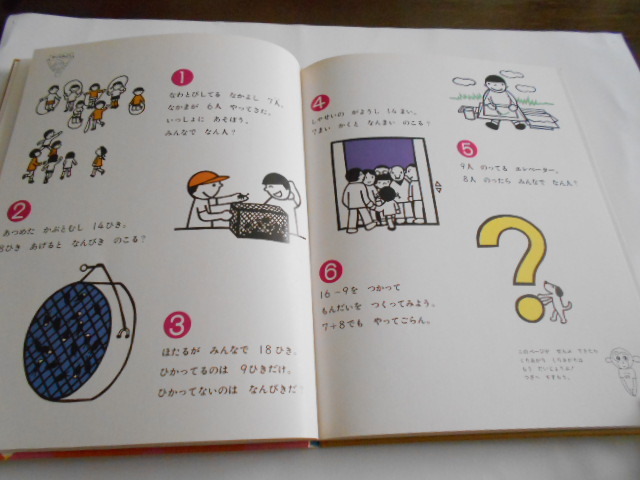 1
なわとびしてる なかよし 7人。
なかまが 6人 やってきた。
いっしょに あそぼう。
みんなで なん人?
2
あつめた かぶとむし 14ひき。
8ひき あげると なんびき のこる?
3
ほたるが みんなで 18ひき。
ひかってるのは 9ひきだけ。
ひかってないのは なんびきだ?
4
しゃせいの がようし 14まい。
まい かくと なんまい のこる?
5
9人 のってる エレベーター。
8人 のったら みんなで なん人?
6
16-9を つかって
もんだいを つくってみよう。
7+8でも やってごらん。
?
このページが ぜんぶ できたら
もう だいじょうぶ!
つぎへ すすもう。